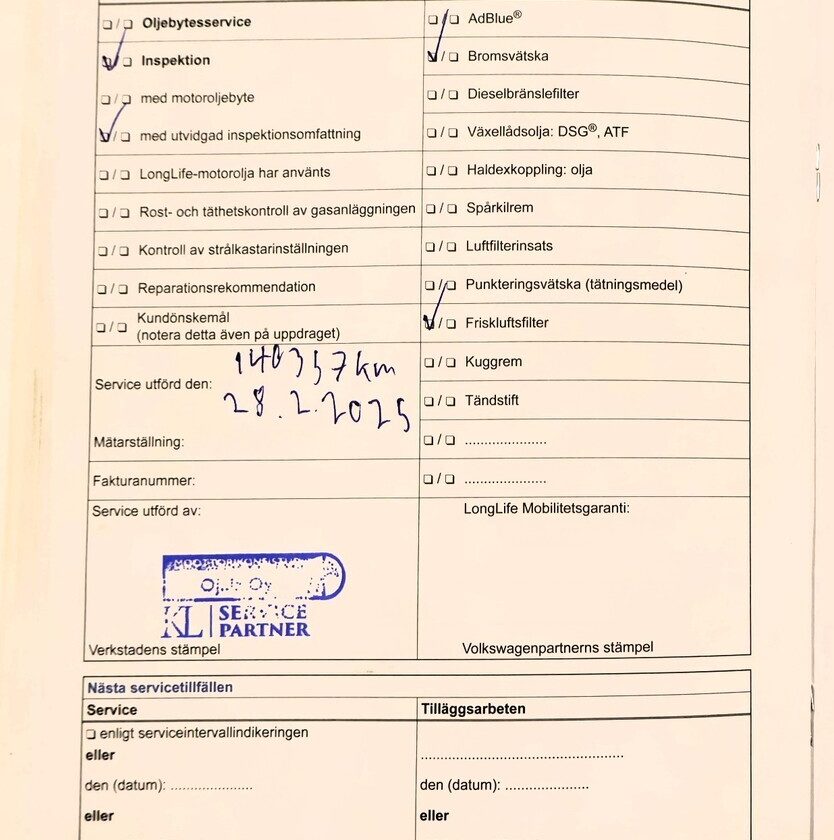 ❏ / ❏ Oljebytesservice
✓ / ❏ Inspektion
❏ / ❏ med motoroljebyte
✓ / ❏ med utvidgad inspektionsomfattning
❏ / ❏ LongLife-motorolja har använts
❏ / ❏ Rost- och täthetskontroll av gasanläggningen
❏ / ❏ Kontroll av strålkastarinställningen
❏ / ❏ Reparationsrekommendation
❏ / ❏ Kundönskemål
(notera detta även på uppdraget)
140357 km
Service utförd den:
28.2.2025
Mätarställning:
Fakturanummer:
Service utförd av:
Oy
KL SERVICE
PARTNER
Verkstadens stämpel
❏ / ❏ AdBlue®
✓ / ❏ Bromsvätska
❏ / ❏ Dieselbränslefilter
❏ / ❏ Växellådsolja: DSG®, ATF
❏ / ❏ Haldexkoppling: olja
❏ / ❏ Spårkilrem
❏ / ❏ Luftfilterinsats
❏ / ❏ Punkteringsvätska (tätningsmedel)
✓ / ❏ Friskluftsfilter
❏ / ❏ Kuggrem
❏ / ❏ Tändstift
❏ / ❏ .....................
❏ / ❏ .....................
LongLife Mobilitetsgaranti:
Volkswagenpartnerns stämpel
Nästa servicetillfällen
Service
❏ enligt serviceintervallindikeringen
eller
den (datum): .....................
eller
Tilläggsarbeten
.....................................................
den (datum): .....................
eller